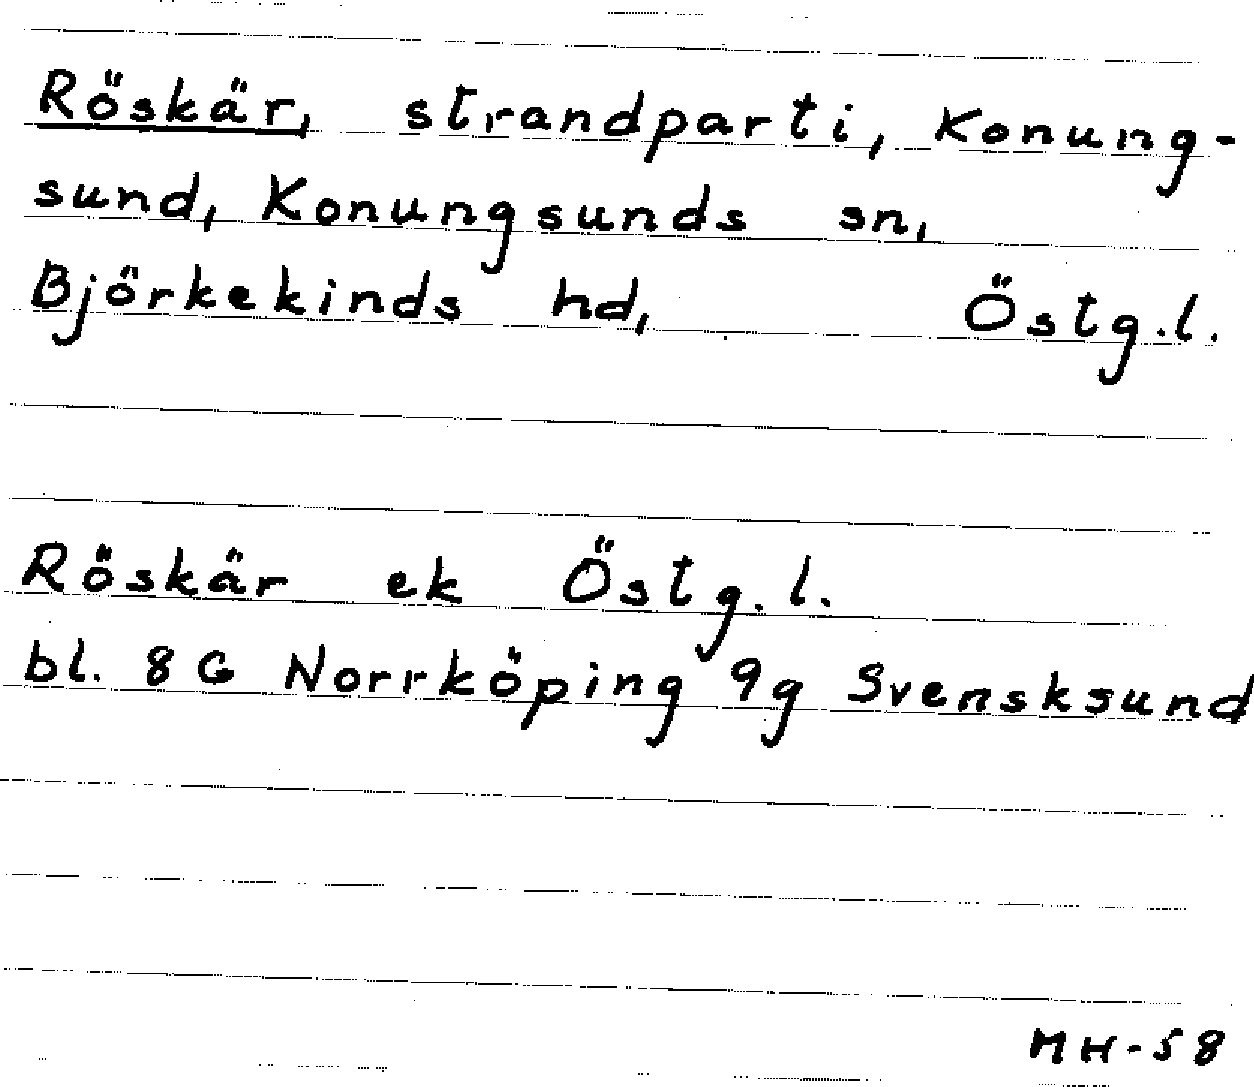 Röskär, strandparti, Konung-
sund, Konungsunds sn,
Björkekinds hd, Östg.l.
Röskär ek Östg.l.
bl. 8 G Norrköping 9g Svensksund
MH-58